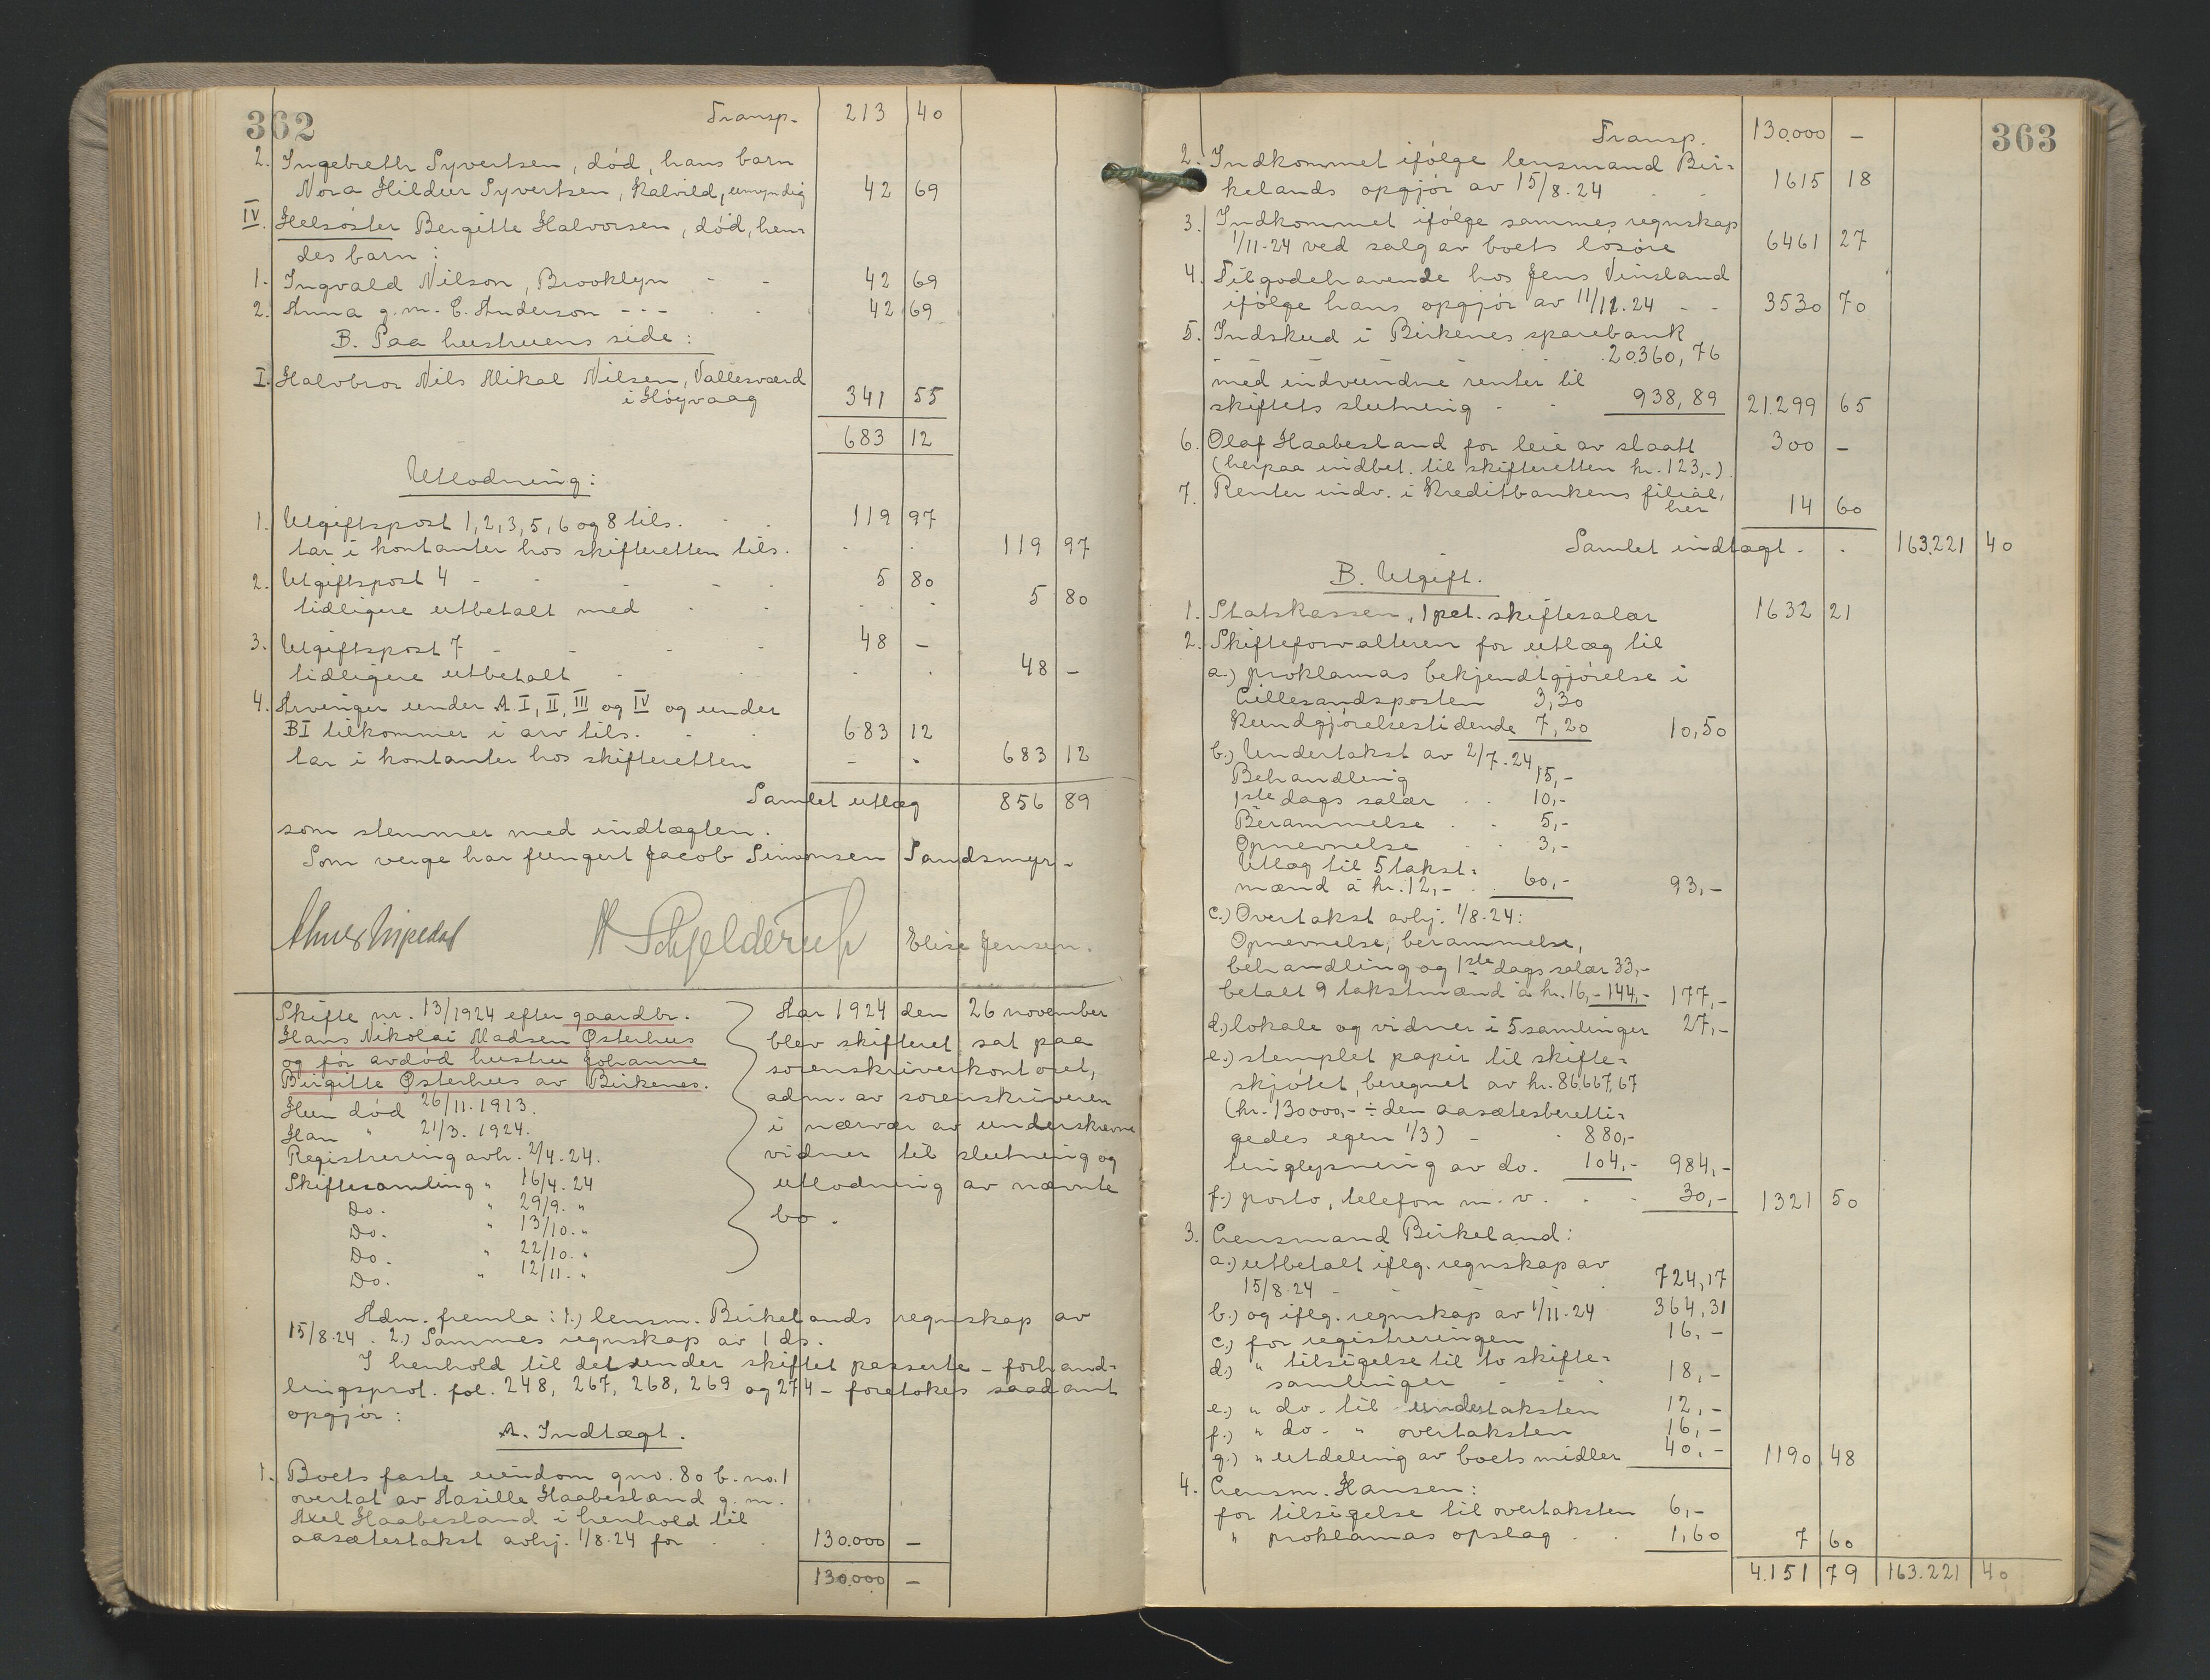 362
Transp. 213 40
2. Ingebreth Syvertsen, död, hans barn
Nora Hildur Syvertsen, Kalvild, umyndig 42 69
IV. Helsöster Bergitte Halvorsen, död, hen-
des barn:
1. Ingvald Nilson, Brooklyn - - 42 69
2. Anna g.m. C. Anderson - - - 42 69
B. Paa hustruens side:
I. Halvbror Nils Mikal Nilsen, Vallesværd
i Höyvaag 341 55
683 12
Utlodning:
1. Utgiftspost 1, 2, 3, 5, 6 og 8 tils. 119 97
tar i kontanter hos skifteretten tils. 119 97
2. Utgiftspost 4 - 5 80
tidligere utbetalt med 5 80
3. Utgiftspost 7 - 48 -
tidligere utbetalt 48 -
4. Arvinger under A I, II, III og IV og under
BI tilkommer i arv tils. 683 12
tar i kontanter hos skifteretten 683 12
Samlet utlæg 856 89
som stemmer med indtægten.
Som verge har fungert Jacob Simonsen Sandsmyr.
A Schjelderup Elise Jensen.
Skifte nr. 13/1924 efter gaardbr.
Hans Nikolai Madsen Østerhus
og för avdöd hustru Johanne
Birgitte Østerhus av Birkenes.
Hun död 26/11. 1913.
Han " 21/3. 1924.
Registrering avh. 2/4. 24.
Skiftesamling " 16/4. 24
Do. " 29/9. "
Do. " 13/10. "
Do. " 22/10. "
Do. " 12/11. "
Aar 1924 den 26 november
blev skifteret sat paa
sorenskriverkontoret,
adm. av sorenskriveren
i nærvær av underskrevne
vidner til slutning og
utlodning av nævnte
bo.
Adm. fremla: 1.) lensm. Birkelands regnskap av
15/8. 24. 2.) Sammes regnskap av 1 ds.
I henhold til det under skiftet passerte - forhand-
lingsprot. fol. 248, 267, 268, 269 og 274 - foretokes saadant
opgjör:
A. Indtægt.
1. Boets faste eiendom gno. 80 b. no. 1
overtat av Aasille Haabesland g. m.
Axel Haabesland i henhold til
aasætestakst avhj. 1/8. 24 for 130.000 -
130.000 -
363
Transp. 130.000 -
2. Indkommet ifölge lensmand Bir-
kelands opgjör av 15/8. 24 1615 18
3. Indkommet ifölge sammes regnskap
1/11. 24 ved salg av boets lösöre 6461 27
4. Tilgodehavende hos Jens Veirsland
ifölge hans opgjör av 11/11. 24 - - 3530 70
5. Indskud i Birkenes sparebank
- - - 20.360,76
med indvundne renter til
skiftets slutning - 938,89 21.299 65
6. Olaf Haabesland for leie av slaatt 300 -
(herpaa indbet. til skifteretten kr. 123,-)
7. Renter indv. i Kreditbankens filial,
her 14 60
Samlet indtægt 163.221 40
B. Utgift.
1. Statskassen, 1 pct. skiftesalær 1632 21
2. Skifteforvalteren for utlæg til
a.) proklamas bekjendtgjörelse i
Lillesandsposten 3,30
Kundgjörelsestidende 7,20 10,50
b.) Undertakst av 2/7. 24
Behandling 15,-
1ste dags salær 10,-
Berammelse 5,-
Opnevnelse 3,-
Utlæg til 5 takst-
mænd à kr. 12,- 60,- 93,-
c.) Overtakst avhj. 1/8. 24:
Opnevnelse, berammelse,
behandling og 1ste dags salær 33,-
betalt 9 takstmænd à kr. 16,- 144,- 177,-
d.) lokale og vidner i 5 samlinger 27,-
e.) stemplet papir til skifte-
skjötet, beregnet av kr. 86.667,67
(kr. 130000,- ÷ den aasætesberetti-
gedes egen 1/3) - 880,-
tinglysning av do. 104,- 984,-
f.) porto, telefon m. v. 30,- 1321 50
3. Lensmand Birkeland:
a.) utbetalt iflg. regnskap av
15/8. 24 - 724,17
b.) og iflg. regnskap av 1/11. 24 364,31
c.) for registreringen 16,-
d.) " tilsigelse til to skifte-
samlinger 18,-
e.) " do. til undertaksten 12,-
f.) " do. " overtaksten 16,-
g.) " utdeling av boets midler 40,- 1190 48
4. Lensm. Hansen:
for tilsigelse til overtaksten 6,-
" proklamas opslag 1,60 7 60
4.151 79 163.221 40